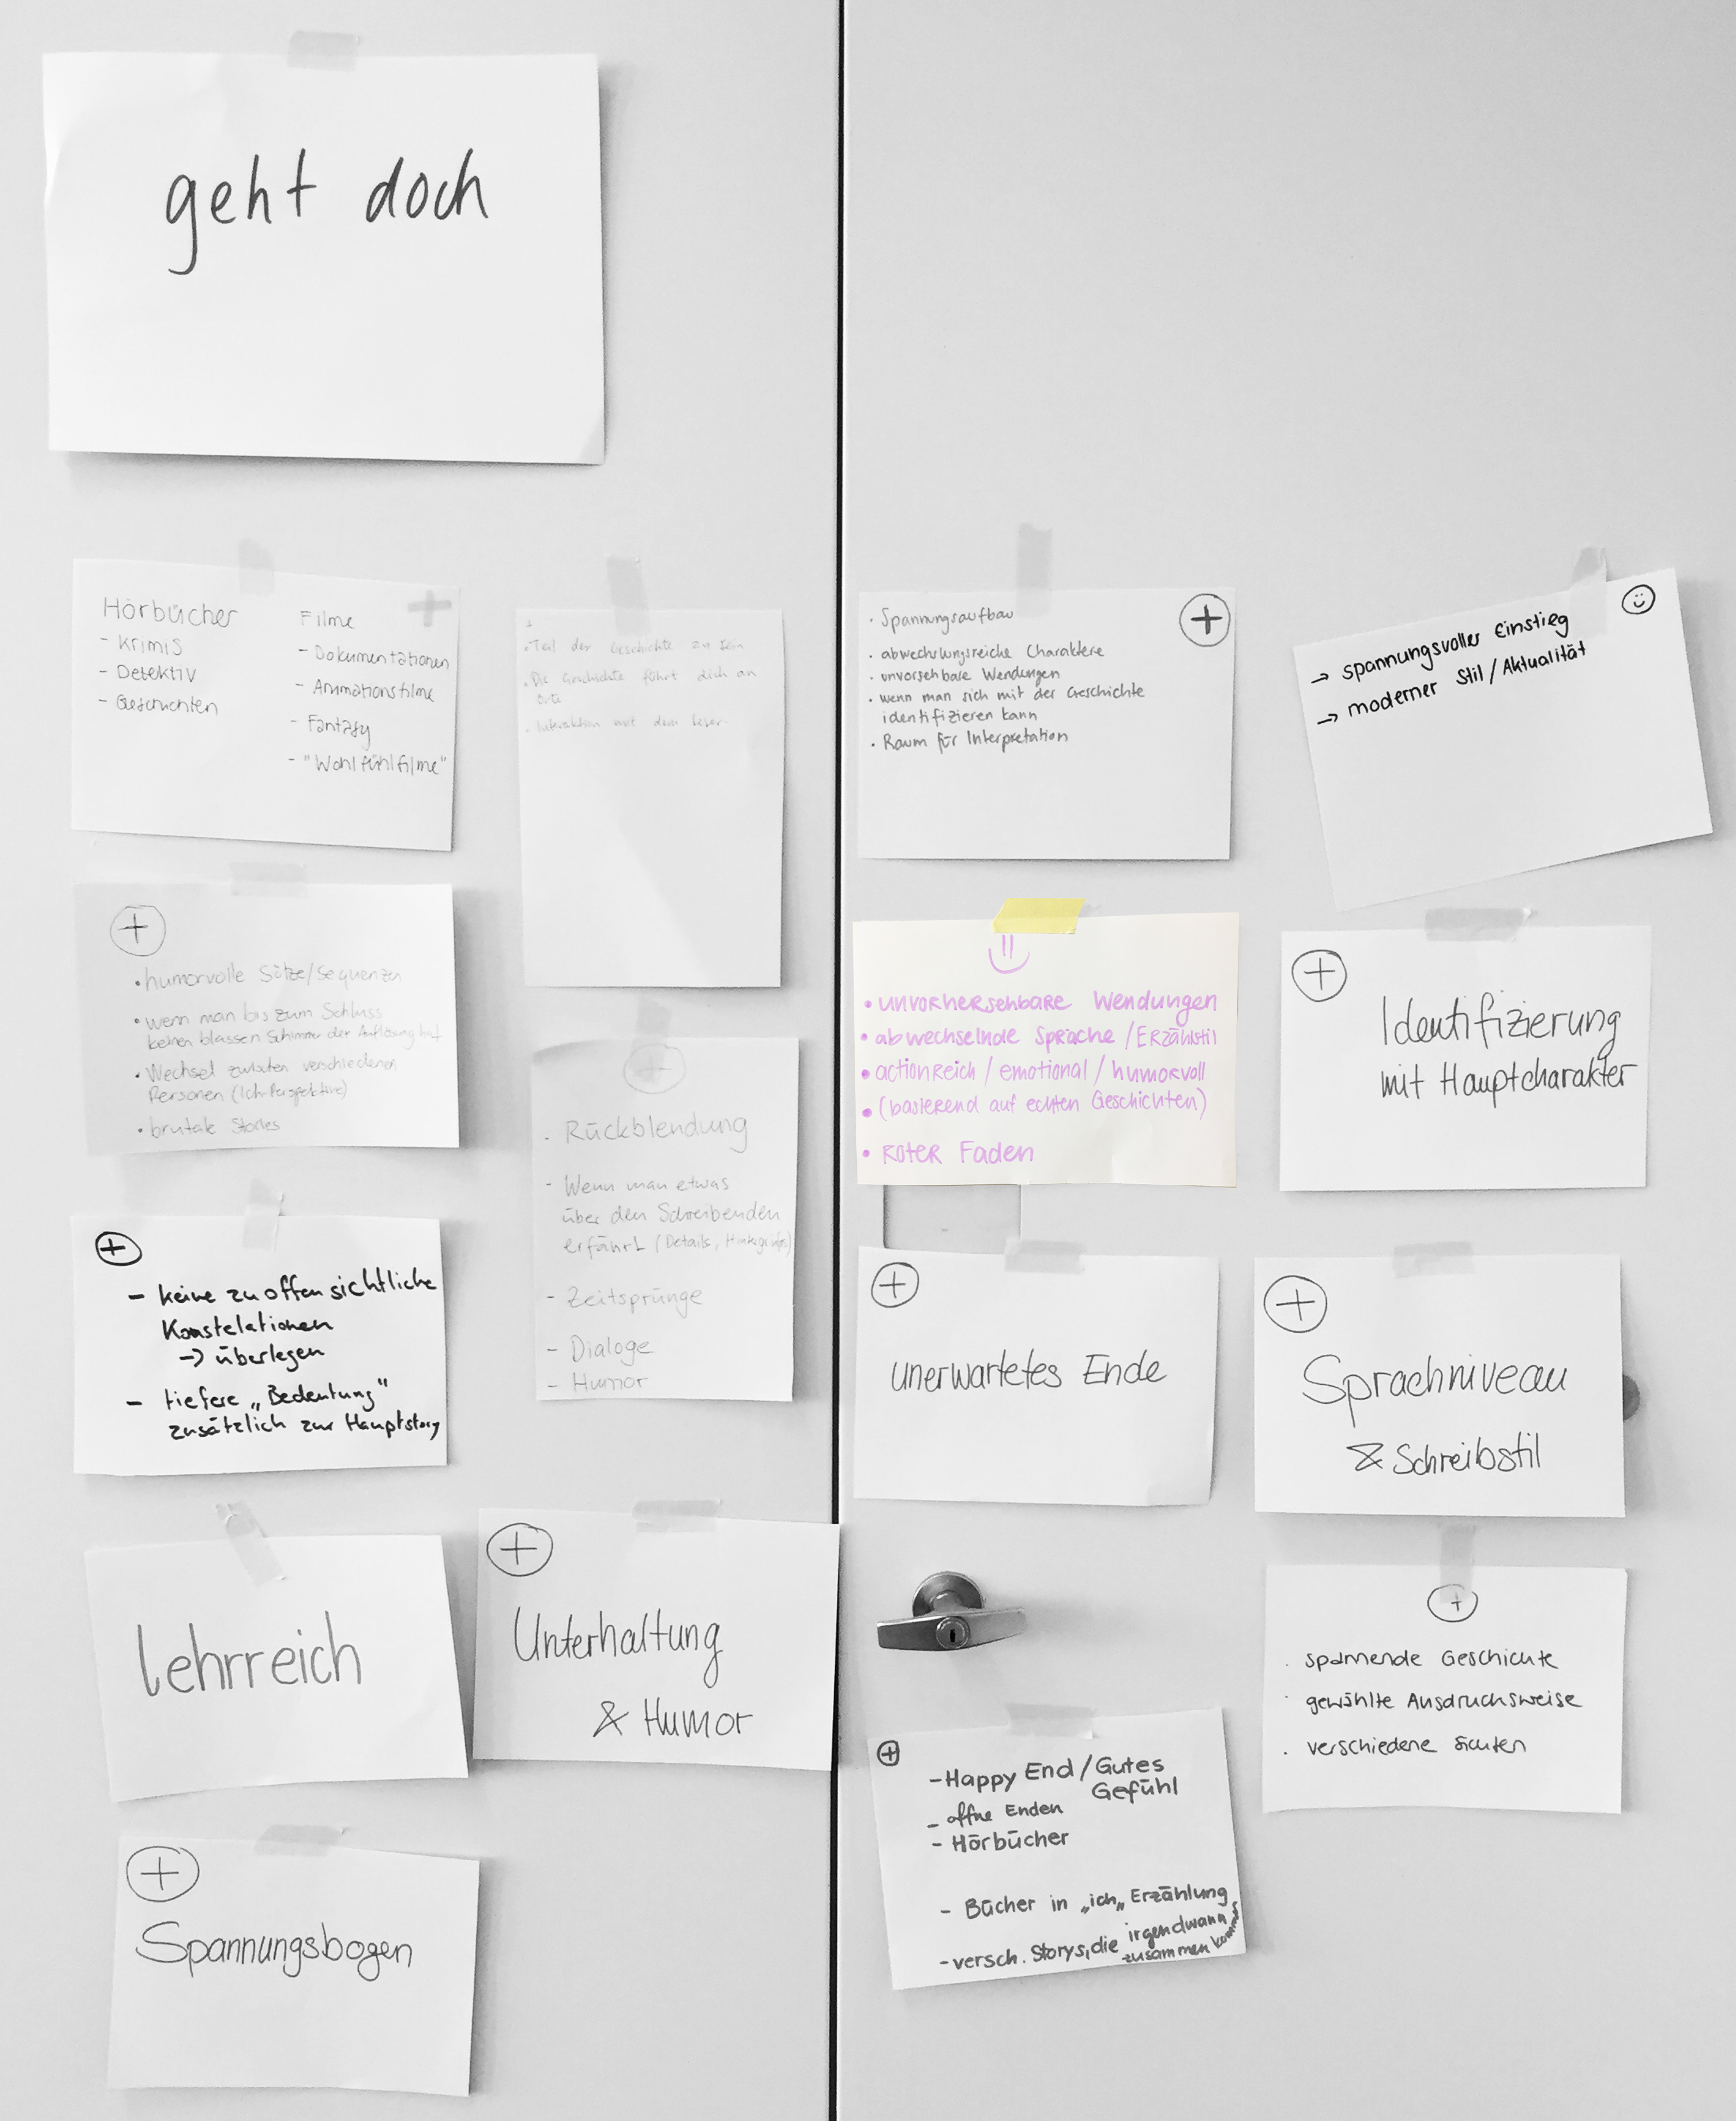 geht doch
Hörbücher
- Krimis
- Detektiv
- Geschichten
Filme
- Dokumentationen
- Animationsfilme
- Fantasy
- "Wohlfühlfilme"
+
+
• Teil der Geschichte zu sein
• Die Geschichte führt dich an
Orte
• Interaktion mit dem Leser
+
• humorvolle Sätze/Sequenzen
• wenn man bis zum Schluss
keinen blassen Schimmer der Auflösung hat
• Wechsel zwischen verschiedenen
Personen (Ich-Perspektive)
• brutale Stories
+
. Rückblendung
- Wenn man etwas
über den Schreibenden
erfährt (Details,
- Zeitsprünge
- Dialoge
- Humor
+
- keine zu offensichtliche
Konstelationen
-> überlegen
- tiefere „Bedeutung"
zusätzlich zur Hauptstory
lehrreich
+
Unterhaltung
& Humor
+
Spannungsbogen
+
• Spannungsaufbau
• abwechslungsreiche Charaktere
• unvorsehbare Wendungen
• wenn man sich mit der Geschichte
identifizieren kann
• Raum für Interpretation
→ spannungsvoller Einstieg
→ moderner Stil/Aktualität
• unvorhersehbare Wendungen
• abwechselnde Sprache/Erzählstil
• actionreich/emotional/humorvoll
• (basierend auf echten Geschichten)
• roter Faden
+
Identifizierung
mit Hauptcharakter
+
unerwartetes Ende
+
Sprachniveau
& Schreibstil
+
. spannende Geschichte
. gewählte Ausdrucksweise
. verschiedene Sichten
+
- Happy End/Gutes
Gefühl
- offne Enden
- Hörbücher
- Bücher in „ich„ Erzählung
- versch. Storys, die irgendwann
zusammen kommen